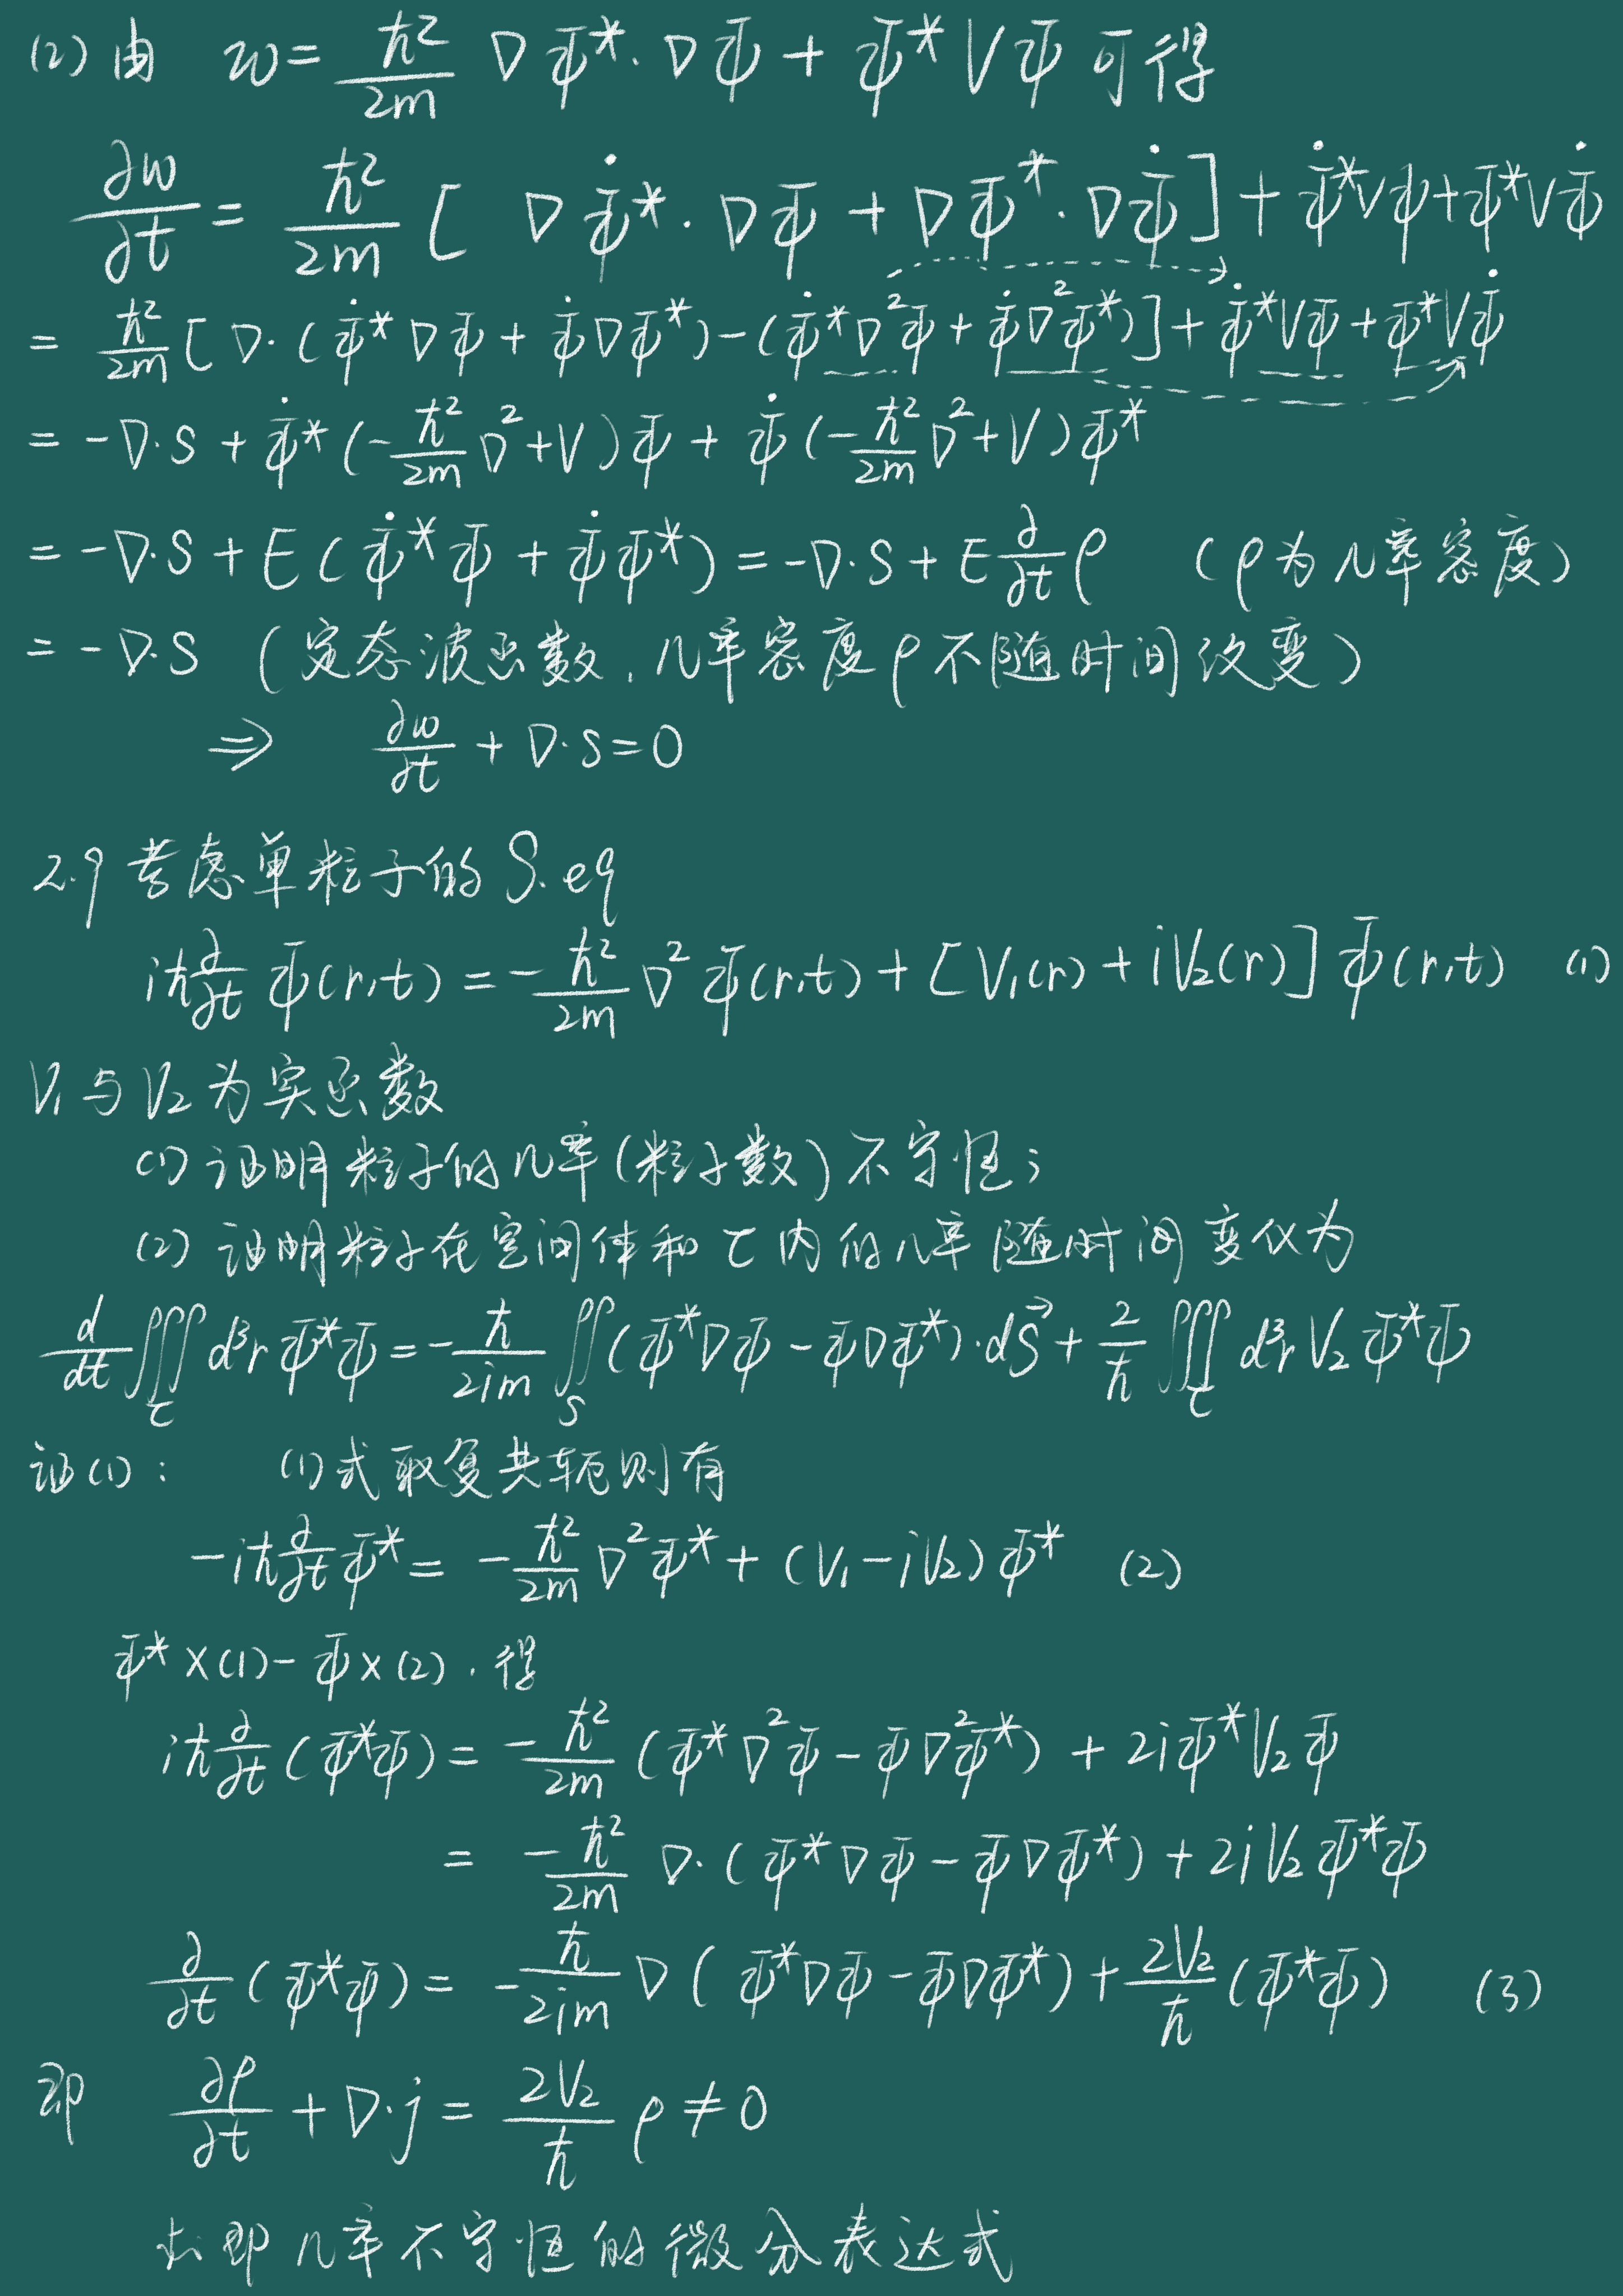 (2) 由 w = ħ²/2m ∇ψ*·∇ψ + ψ*Vψ 可得
∂w/∂t = ħ²/2m [ ∇ψ̇*·∇ψ + ∇ψ*·∇ψ̇ ] + ψ̇*Vψ + ψ*Vψ̇
= ħ²/2m [∇·(ψ̇*∇ψ + ψ̇∇ψ*) - (ψ̇*∇²ψ + ψ̇∇²ψ*)] + ψ̇*Vψ + ψ*Vψ̇
= -∇·S + ψ̇*(-ħ²/2m ∇² + V)ψ + ψ̇(-ħ²/2m ∇² + V)ψ*
= -∇·S + E(ψ̇*ψ + ψ̇ψ*) = -∇·S + E ∂/∂t ρ (ρ为几率密度)
= -∇·S (定态波函数,几率密度ρ不随时间改变)
⇒ ∂w/∂t + ∇·S = 0
2.9 考虑单粒子的 S.eq
iħ ∂/∂t ψ(r,t) = -ħ²/2m ∇²ψ(r,t) + [V₁(r) + iV₂(r)]ψ(r,t) (1)
V₁与V₂为实函数
(1) 证明粒子的几率(粒子数)不守恒;
(2) 证明粒子在空间体积τ内的几率随时间变化为
d/dt ∭_τ d³r ψ*ψ = -ħ/2im ∬_S (ψ*∇ψ - ψ∇ψ*)·dS⃗ + 2/ħ ∭_τ d³r V₂ψ*ψ
证(1): (1)式取复共轭则有
-iħ ∂/∂t ψ* = -ħ²/2m ∇²ψ* + (V₁ - iV₂)ψ* (2)
ψ*×(1) - ψ×(2),得
iħ ∂/∂t (ψ*ψ) = -ħ²/2m (ψ*∇²ψ - ψ∇²ψ*) + 2iψ*V₂ψ
= -ħ²/2m ∇·(ψ*∇ψ - ψ∇ψ*) + 2iV₂ψ*ψ
∂/∂t (ψ*ψ) = -ħ/2im ∇(ψ*∇ψ - ψ∇ψ*) + 2V₂/ħ (ψ*ψ) (3)
即 ∂ρ/∂t + ∇·j = 2V₂/ħ ρ ≠ 0
此即几率不守恒的微分表达式